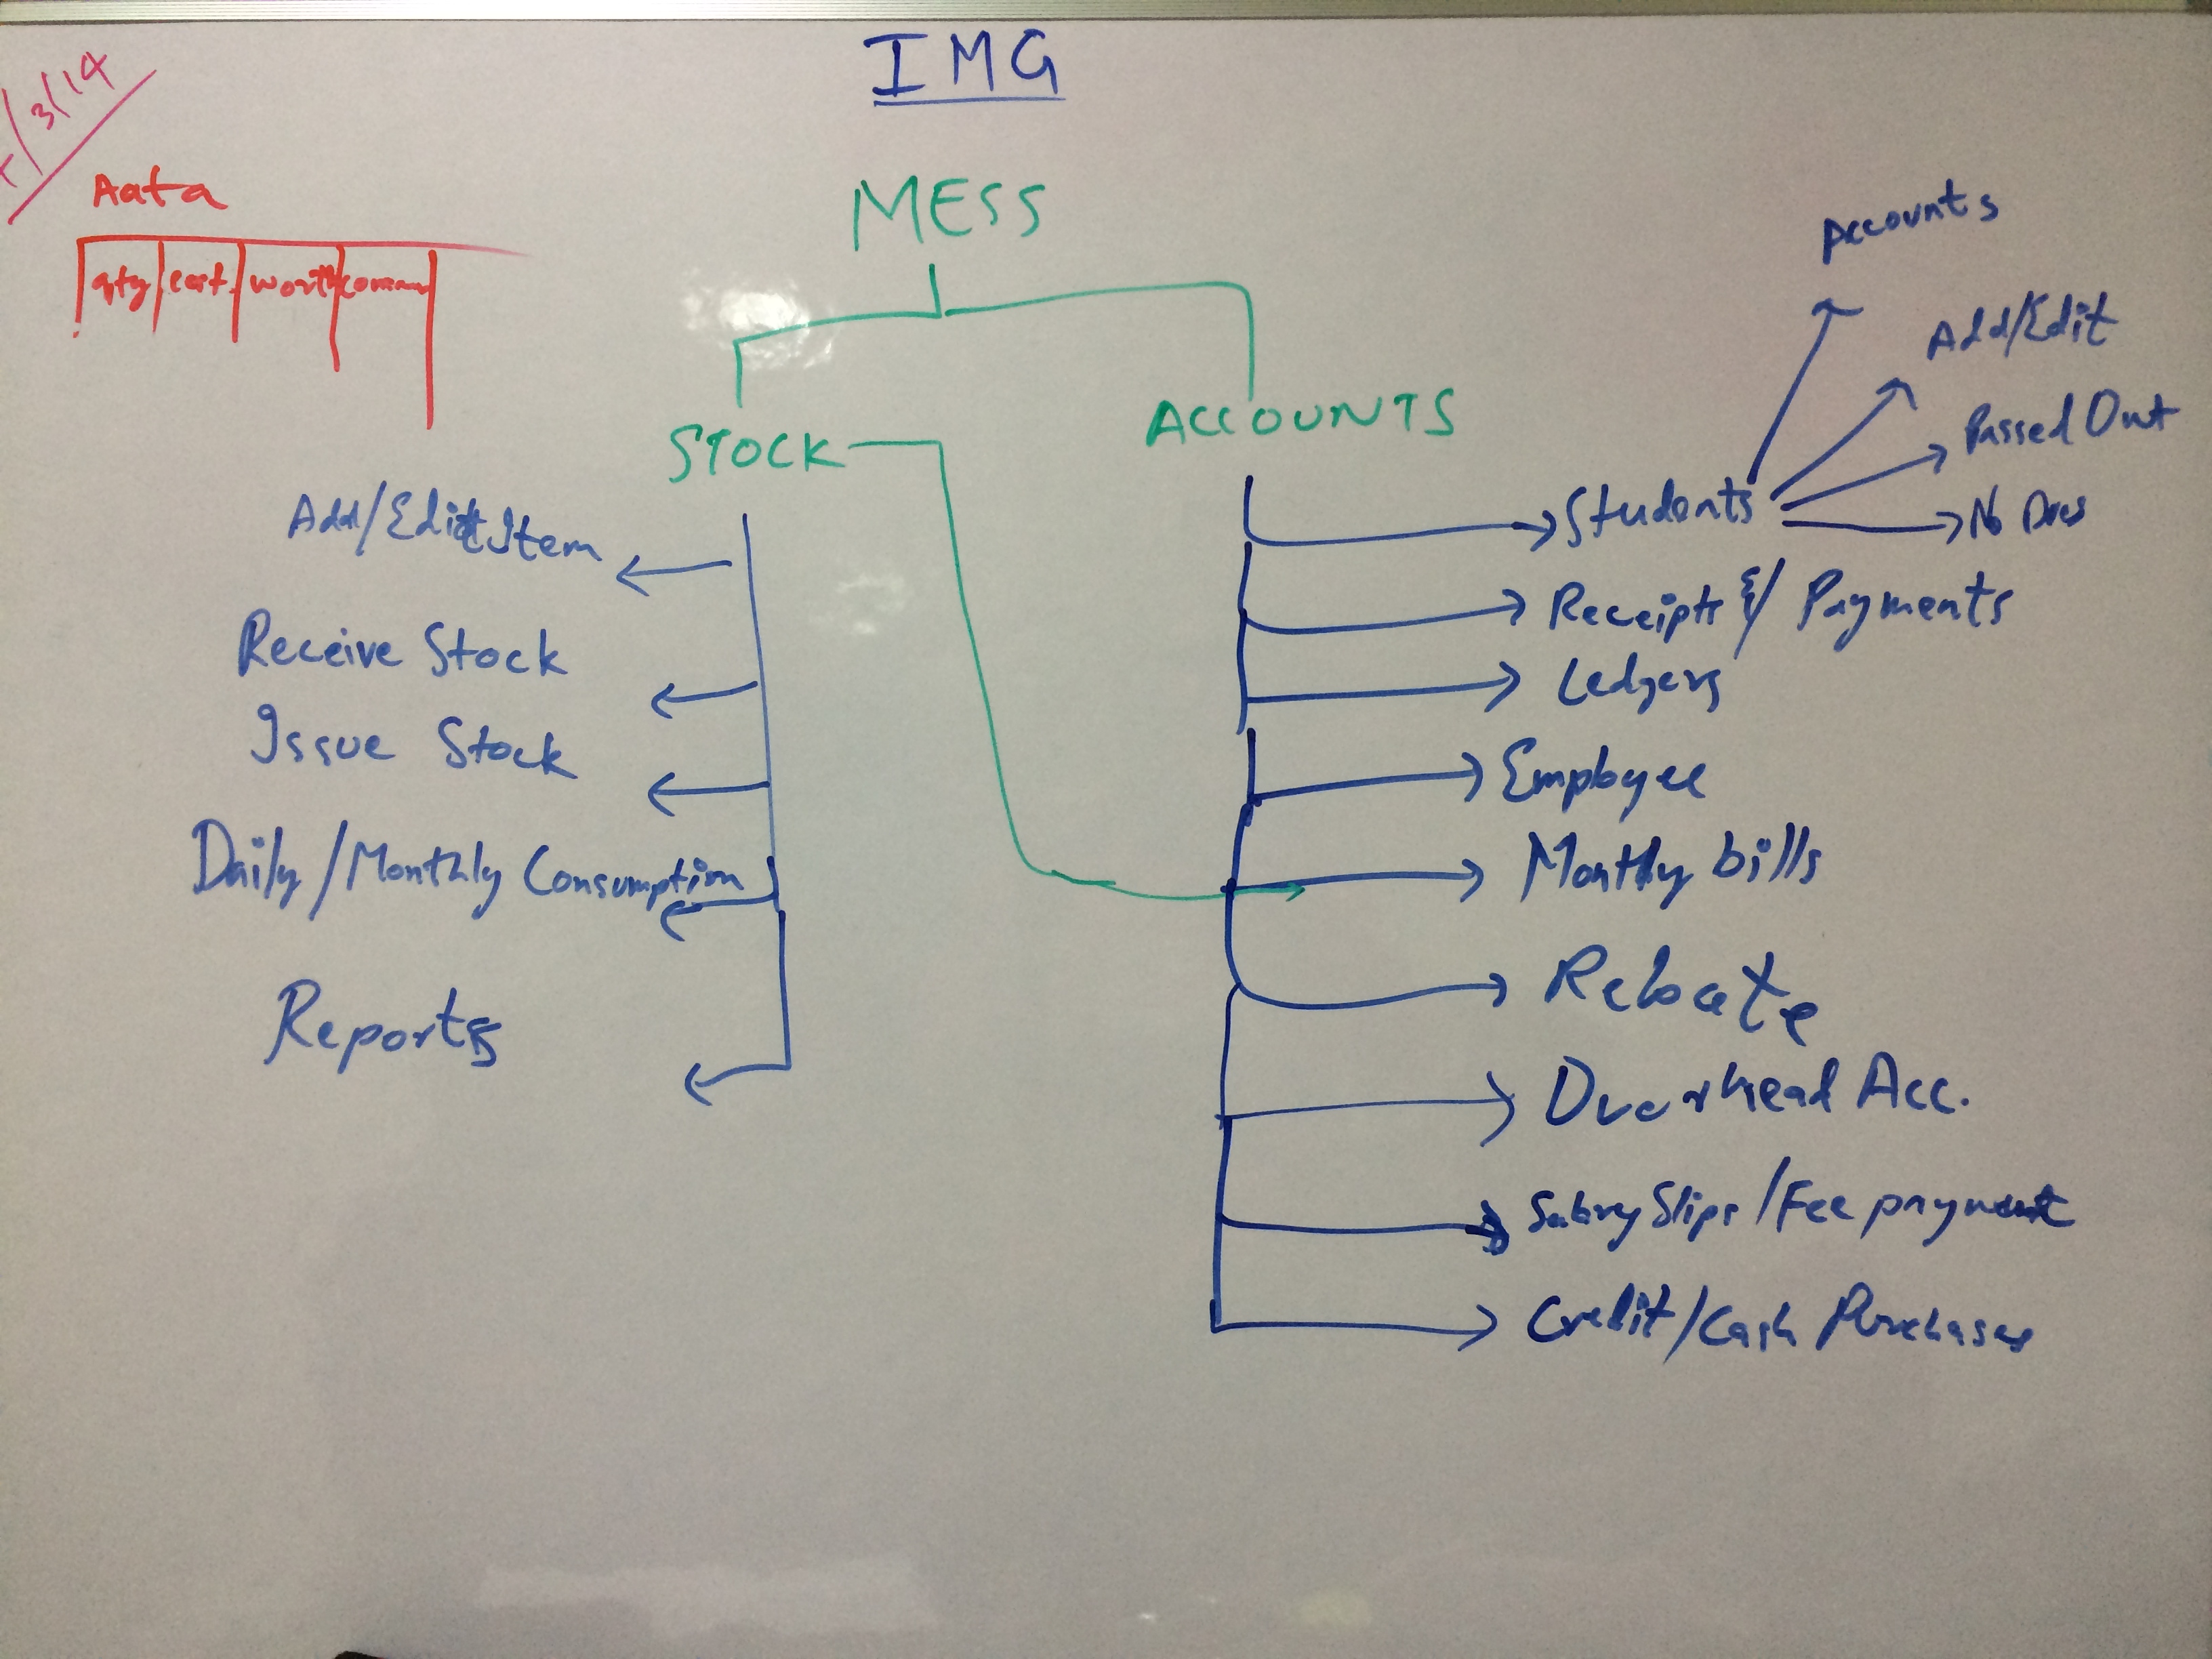 IMG
/3/14
Aata
qty cost. worth
MESS
STOCK
ACCOUNTS
Add/Edit Item
Receive Stock
Issue Stock
Daily/Monthly Consumption
Reports
Students
Accounts
Add/Edit
Passed Out
No Dues
Receipts & / Payments
Ledgers
Employee
Monthly bills
Overhead Acc.
Salary Slips/Fee payment
Credit/Cash Purchases